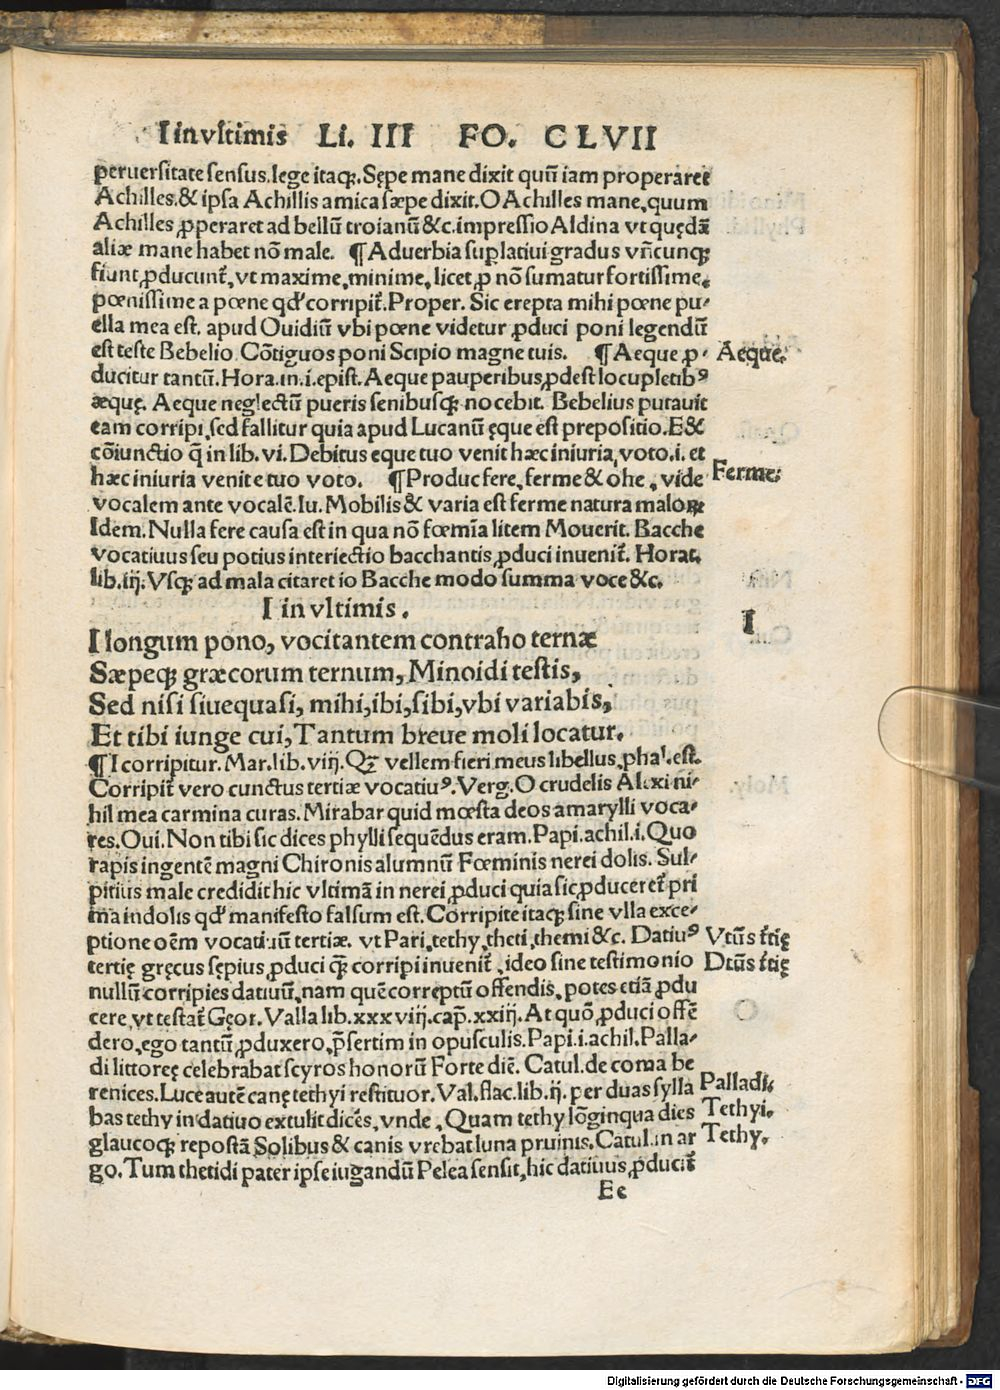 I in vltimis Li. III FO. CLVII
peruersitate sensus.lege itaq;.Sępe mane dixit quū iam properaret
Achilles.& ipsa Achillis amica sæpe dixit.O Achilles mane,quum
Achilles ꝓperaret ad bellū troianū &c.impressio Aldina vt quędā
aliæ mane habet nō male. ¶ Aduerbia suplatiui gradus vñcunq;
fiunt,ꝓducunt᷑,vt maxime,minime,licet,ꝓ nō sumatur fortissime,
pœnissime a pœne qd' corripit᷑.Proper. Sic erepta mihi pœne pu-
ella mea est. apud Ouidiū vbi pœne videtur ꝓduci poni legendū
est teste Bebelio Cōtiguos poni Scipio magne tuis. ¶ Aeque ꝓ- Aeque.
ducitur tantū.Hora.in.i.epist.Aeque pauperibus,ꝓdest locupletibꝰ
æquę. Aeque neglectū pueris senibusq; nocebit. Bebelius putauit
eam corripi,sed fallitur quia apud Lucanū ęque est prepositio.E &
cōiunctio q̄ in lib.vi.Debitus eque tuo venit hæc iniuria voto.i.et
hæc iniuria venit e tuo voto. ¶ Produc fere,ferme & ohe,vide Ferme.
vocalem ante vocalē.Iu.Mobilis & varia est ferme natura maloꝝ
Idem.Nulla fere causa est in qua nō fœmīa litem Mouerit. Bacche
vocatiuus seu potius interiectio bacchantis,ꝓduci inuenit᷑. Horat.
lib.iij.Vsq; ad mala citaret io Bacche modo summa voce &c.
I in vltimis.
I
I longum pono, vocitantem contraho ternæ
Sæpeq; græcorum ternum, Minoidi testis,
Sed nisi siuequasi, mihi,ibi,sibi,vbi variabis,
Et tibi iunge cui, Tantum breue moli locatur.
¶ I corripitur. Mar.lib.viij.Qꝫ vellem fieri meus libellus.phal.est.
Corripit᷑ vero cunctus tertiæ vocatiuꝰ.Verg.O crudelis Alexi ni-
hil mea carmina curas. Mirabar quid mœsta deos amarylli voca-
res.Oui.Non tibi sic dices phylli sequēdus eram.Papi.achil.i.Quo
rapis ingentē magni Chironis alumnū Fœminis nerei dolis. Sul-
pitius male credidit hic vltimā in nerei,ꝓduci quia sic,ꝓduceret᷑ pri
ma in dolis qd' manifesto falsum est.Corripite itaq; sine vlla exce-
ptione oēm vocatiuū tertiæ. vt Pari,tethy,theti,themi &c. Datiuꝰ Vtūs t᷑tię
tertię gręcus sępius,ꝓduci q̄ꝫ corripi inuenit᷑,ideo sine testimonio Dtūs t᷑tię
nullū corripies datiuū,nam quē correptū offendis,potes etiā ꝓdu
cere,vt testat᷑ Gęor.Valla lib.xxxviij.cap.xxiij.At quō,ꝓduci offē
dero,ego tantū,ꝓduxero,p̄sertim in opusculis.Papi.i.achil.Palla-
di littoreę celebrabat scyros honorū Forte diē. Catul.de coma be
renices.Luce autē canę tethyi restituor.Val.flac.lib.ij.per duas sylla Palladi.
bas tethy in datiuo extulit dicēs,vnde,Quam tethy lōginqua dies Tethyi.
glaucoq; repostā Solibus & canis vrebat luna pruinis.Catul.in ar Tethy.
go.Tum thetidi pater ipse iugandū Pelea sensit,hic datiuus,ꝓducit᷑
Ee
Digitalisierung gefördert durch die Deutsche Forschungsgemeinschaft - DFG